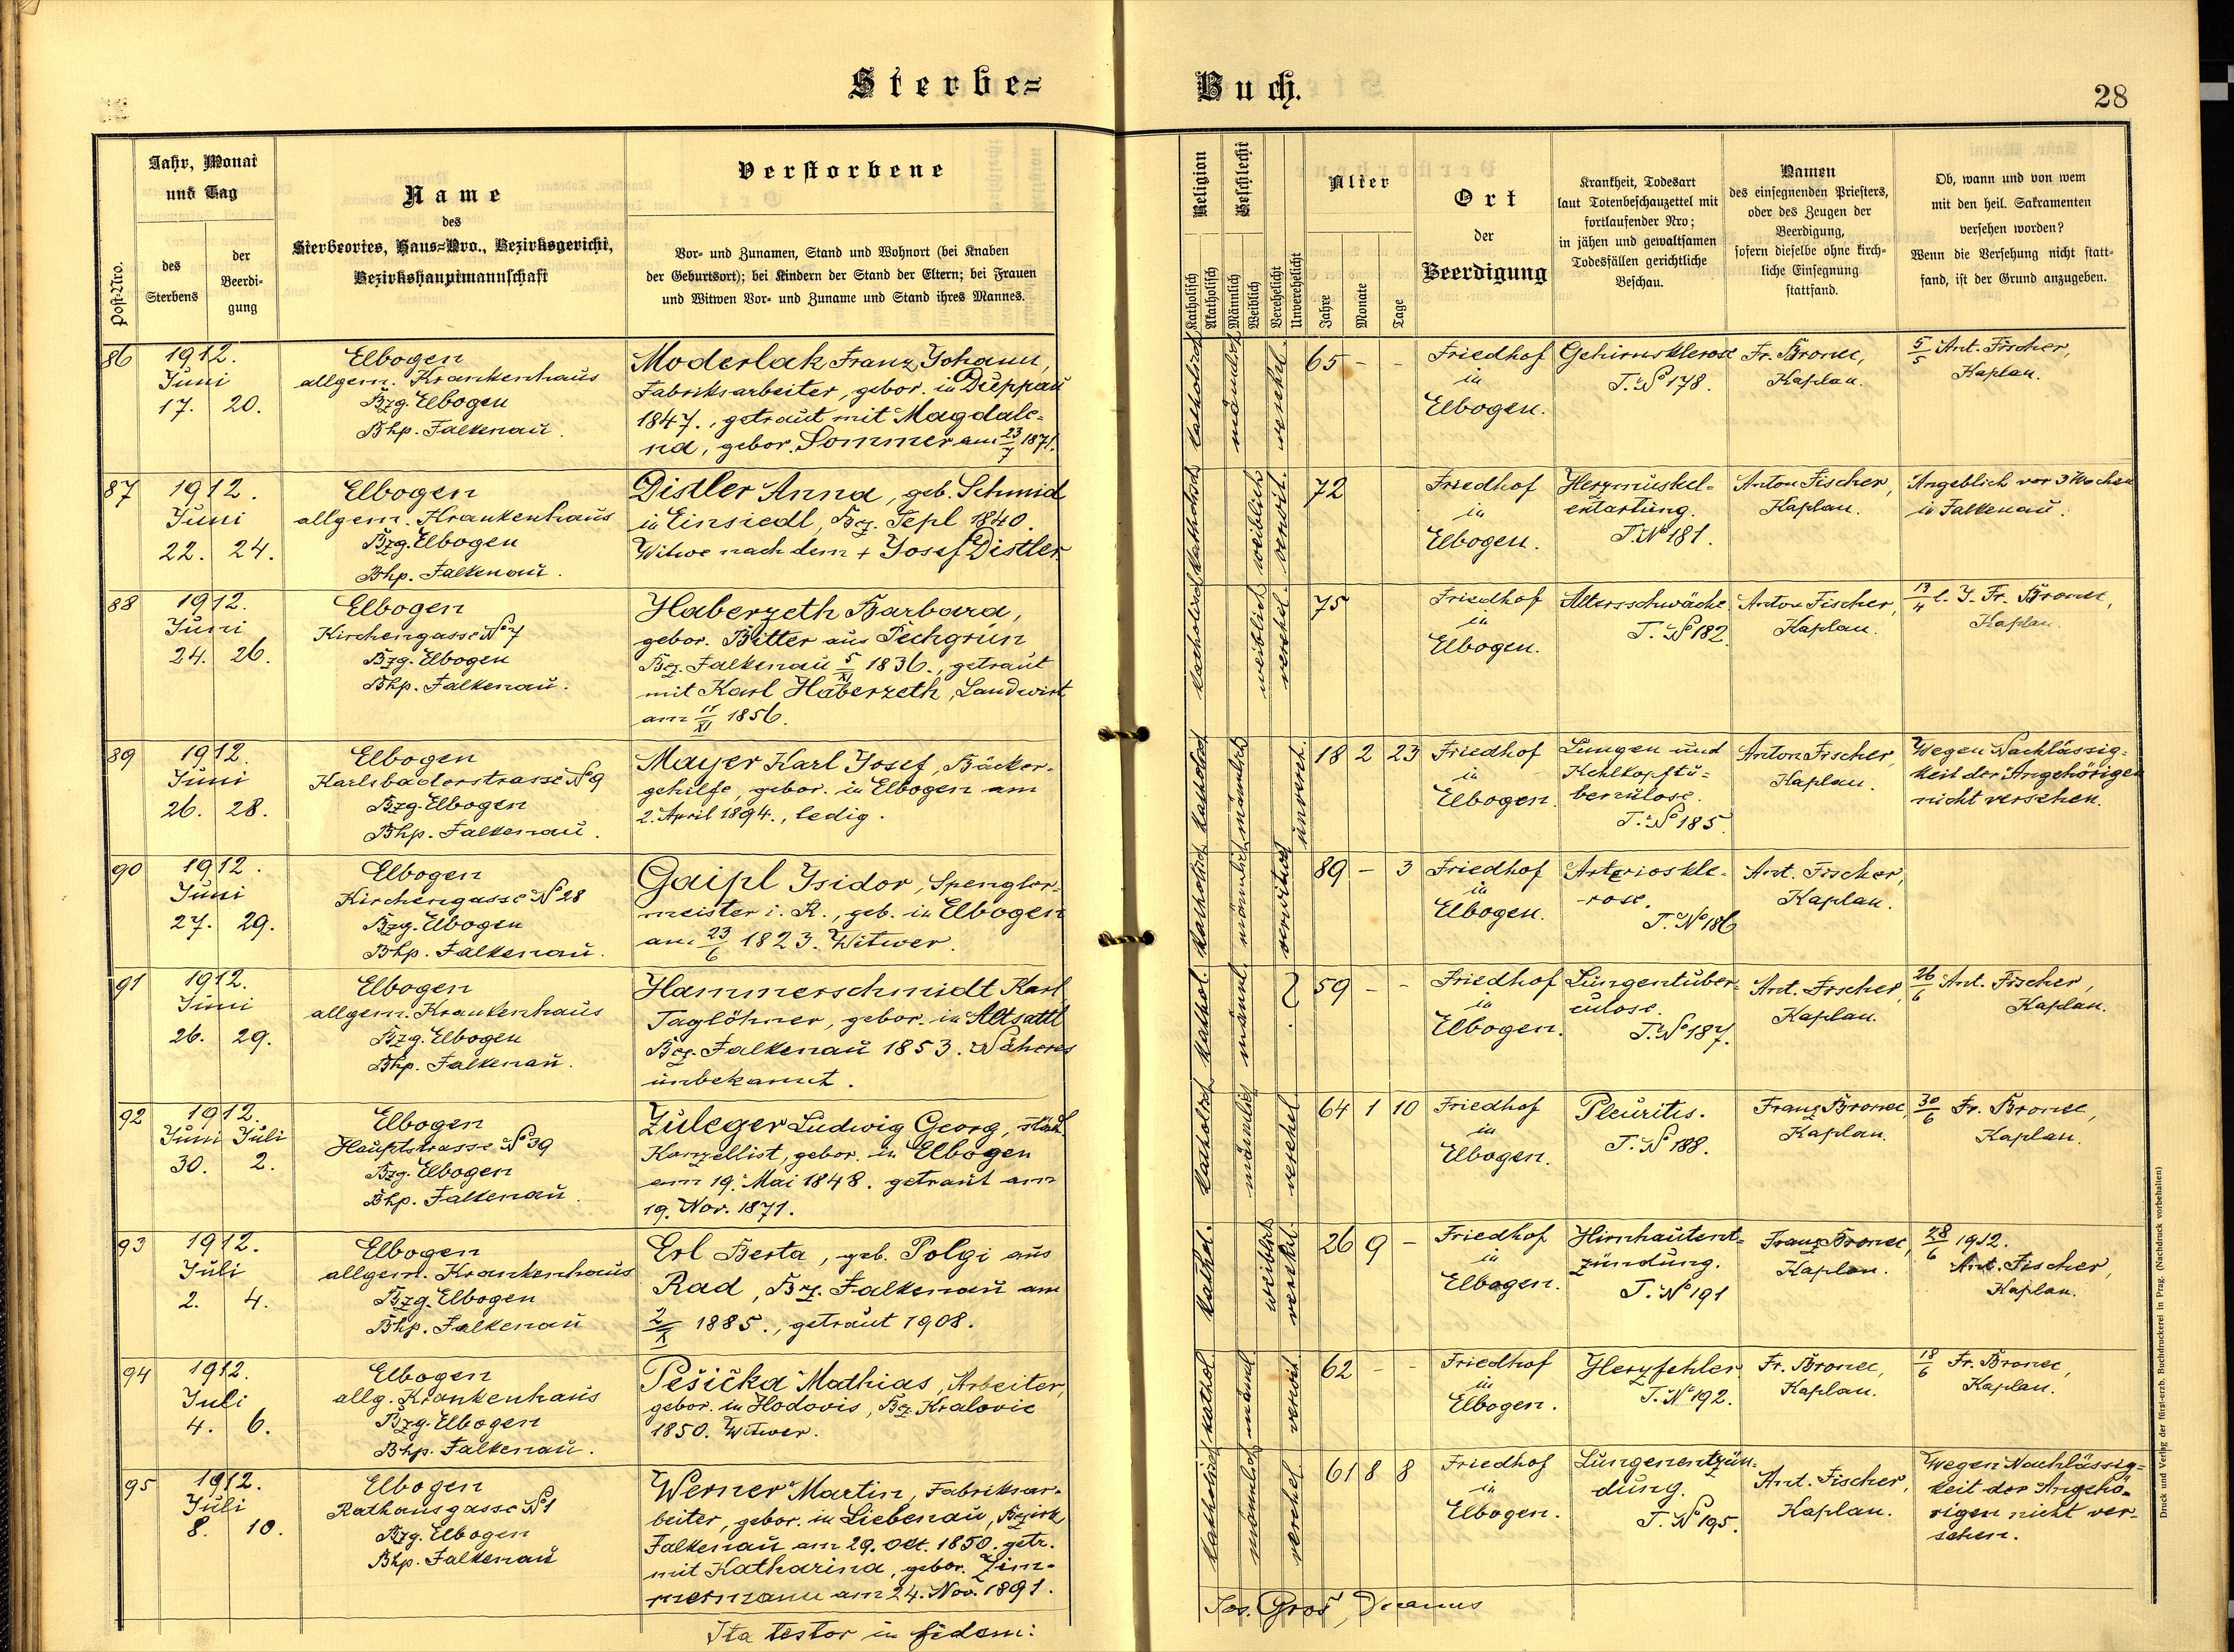 Sterbe= Buch.
28
Post-Nro.
Jahr, Monat
und Tag
des
Sterbens
der
Beerdi-
gung
Name
des
Sterbeortes, Haus=Nro., Bezirksgericht,
Bezirkshauptmannschaft
Verstorbene
Vor- und Zunamen, Stand und Wohnort (bei Knaben
der Geburtsort); bei Kindern der Stand der Eltern; bei Frauen
und Witwen Vor- und Zuname und Stand ihres Mannes.
Religion
Katholisch
Akatholisch
Geschlecht
Männlich
Weiblich
Verehelicht
Unverehelicht
Alter
Jahre
Monate
Tage
Ort
der
Beerdigung
Krankheit, Todesart
laut Totenbeschauzettel mit
fortlaufender Nro;
in jähen und gewaltsamen
Todesfällen gerichtliche
Beschau.
Namen
des einsegnenden Priesters,
oder des Zeugen der
Beerdigung,
sofern dieselbe ohne kirch-
liche Einsegnung
stattfand.
Ob, wann und von wem
mit den heil. Sakramenten
versehen worden?
Wenn die Versehung nicht statt-
fand, ist der Grund anzugeben.
86
1912.
Juni
17. 20.
Elbogen
allgem. Krankenhaus
Bzg. Elbogen
Bhp. Falkenau.
Moderlak Franz Johann,
Fabriksarbeiter, gebor. in Duppau
1847., getraut mit Magdale-
na, gebor. Sommer am 23/7 1871.
katholisch
männlich
verehel.
65 - -
Friedhof
in
Elbogen.
Gehirnsklerose
T. No 178.
Fr. Bronec,
Kaplan.
5/5 Ant. Fischer,
Kaplan.
87
1912.
Juni
22. 24.
Elbogen
allgem. Krankenhaus
Bzg. Elbogen
Bhp. Falkenau.
Distler Anna, geb. Schmid
in Einsiedl, Bez. Tepl 1840.
Witwe nach dem + Josef Distler.
katholisch
weiblich
verwit.
72
Friedhof
in
Elbogen.
Herzmuskel-
entartung.
T. No 181.
Anton Fischer,
Kaplan.
Angeblich vor 3 Wochen
in Falkenau.
88
1912.
Juni
24. 26.
Elbogen
Kirchengasse No 7
Bzg. Elbogen
Bhp. Falkenau.
Haberzeth Barbara,
gebor. Bitter aus Pechgrün
Bez. Falkenau 5/XI 1836., getraut
mit Karl Haberzeth, Landwirt
am 11/XI 1856.
katholisch
weiblich
verehel.
75
Friedhof
in
Elbogen.
Altersschwäche
T. No 182.
Anton Fischer,
Kaplan.
17/4 l. J. Fr. Bronec,
Kaplan.
89
1912.
Juni
26. 28.
Elbogen
Karlsbaderstrasse No 9
Bzg. Elbogen
Bhp. Falkenau.
Mayer Karl Josef, Bäcker-
gehilfe, gebor. in Elbogen am
2. April 1894., ledig.
katholisch
männlich
unvereh.
18 2 23
Friedhof
in
Elbogen.
Lungen und
Kehlkopftu-
berculose.
T. No 185.
Anton Fischer,
Kaplan.
Wegen Nachlässig-
keit der Angehörigen
nicht versehen.
90
1912.
Juni
27. 29.
Elbogen
Kirchengasse No 28
Bzg. Elbogen
Bhp. Falkenau.
Gaipl Isidor, Spengler-
meister i. R., geb. in Elbogen
am 23/6 1823. Witwer.
katholisch
männlich
verwitwet
89 - 3
Friedhof
in
Elbogen.
Arterioskle-
rose.
T. No 186
Ant. Fischer,
Kaplan.
91
1912.
Juni
26. 29.
Elbogen
allgem. Krankenhaus
Bzg. Elbogen
Bhp. Falkenau.
Hammerschmidt Karl,
Taglöhner, gebor. in Altsattl
Bez. Falkenau 1853. Näheres
unbekannt.
kathol.
männl.
?
59 - -
Friedhof
in
Elbogen.
Lungentuber-
culose.
T. No 187.
Ant. Fischer,
Kaplan.
26/6 Ant. Fischer,
Kaplan.
92
1912.
Juni Juli
30. 2.
Elbogen
Hauptstrasse No 39
Bzg. Elbogen
Bhp. Falkenau.
Zuleger Ludwig Georg, städt.
Kanzellist, gebor. in Elbogen
am 19. Mai 1848. getraut am
19. Nov. 1871.
katholisch
männlich
verehel
64 1 10
Friedhof
in
Elbogen.
Pleuritis.
T. No 188.
Franz Bronec,
Kaplan.
30/6 Fr. Bronec,
Kaplan.
93
1912.
Juli
2. 4.
Elbogen
allgem. Krankenhaus
Bzg. Elbogen
Bhp. Falkenau
Erl Berta, geb. Polgi aus
Rad, Bez. Falkenau am
2/X 1885., getraut 1908.
kathol.
weiblich
verehel.
26 9 -
Friedhof
in
Elbogen.
Hirnhautent-
zündung.
T. No 191
Franz Bronec,
Kaplan.
28/6 1912.
Ant. Fischer,
Kaplan.
94
1912.
Juli
4. 6.
Elbogen
allg. Krankenhaus
Bzg. Elbogen
Bhp. Falkenau.
Pešička Mathias, Arbeiter,
gebor. in Hodovis, Bez. Kralovic
1850. Witwer.
kathol.
männl
verwit.
62 - -
Friedhof
in
Elbogen.
Herzfehler
T. No 192.
Fr. Bronec,
Kaplan.
18/6 Fr. Bronec,
Kaplan.
95
1912.
Juli
8. 10.
Elbogen
Rathausgasse No 1
Bzg. Elbogen
Bhp. Falkenau
Werner Martin, Fabriksar-
beiter, gebor. in Liebenau, Bezirk
Falkenau am 29. Okt. 1850. getr.
mit Katharina, gebor. Zim-
mermann am 24. Nov. 1891.
katholisch
männlich
verehel
61 8 8
Friedhof
in
Elbogen.
Lungenentzün-
dung.
T. No 195.
Ant. Fischer,
Kaplan.
Wegen Nachlässig-
keit der Angehö-
rigen nicht ver-
sehen.
Ita testor in fidem:
Jos. Groš, Decanus
Druck und Verlag der fürst-erzb. Buchdruckerei in Prag. (Nachdruck vorbehalten)